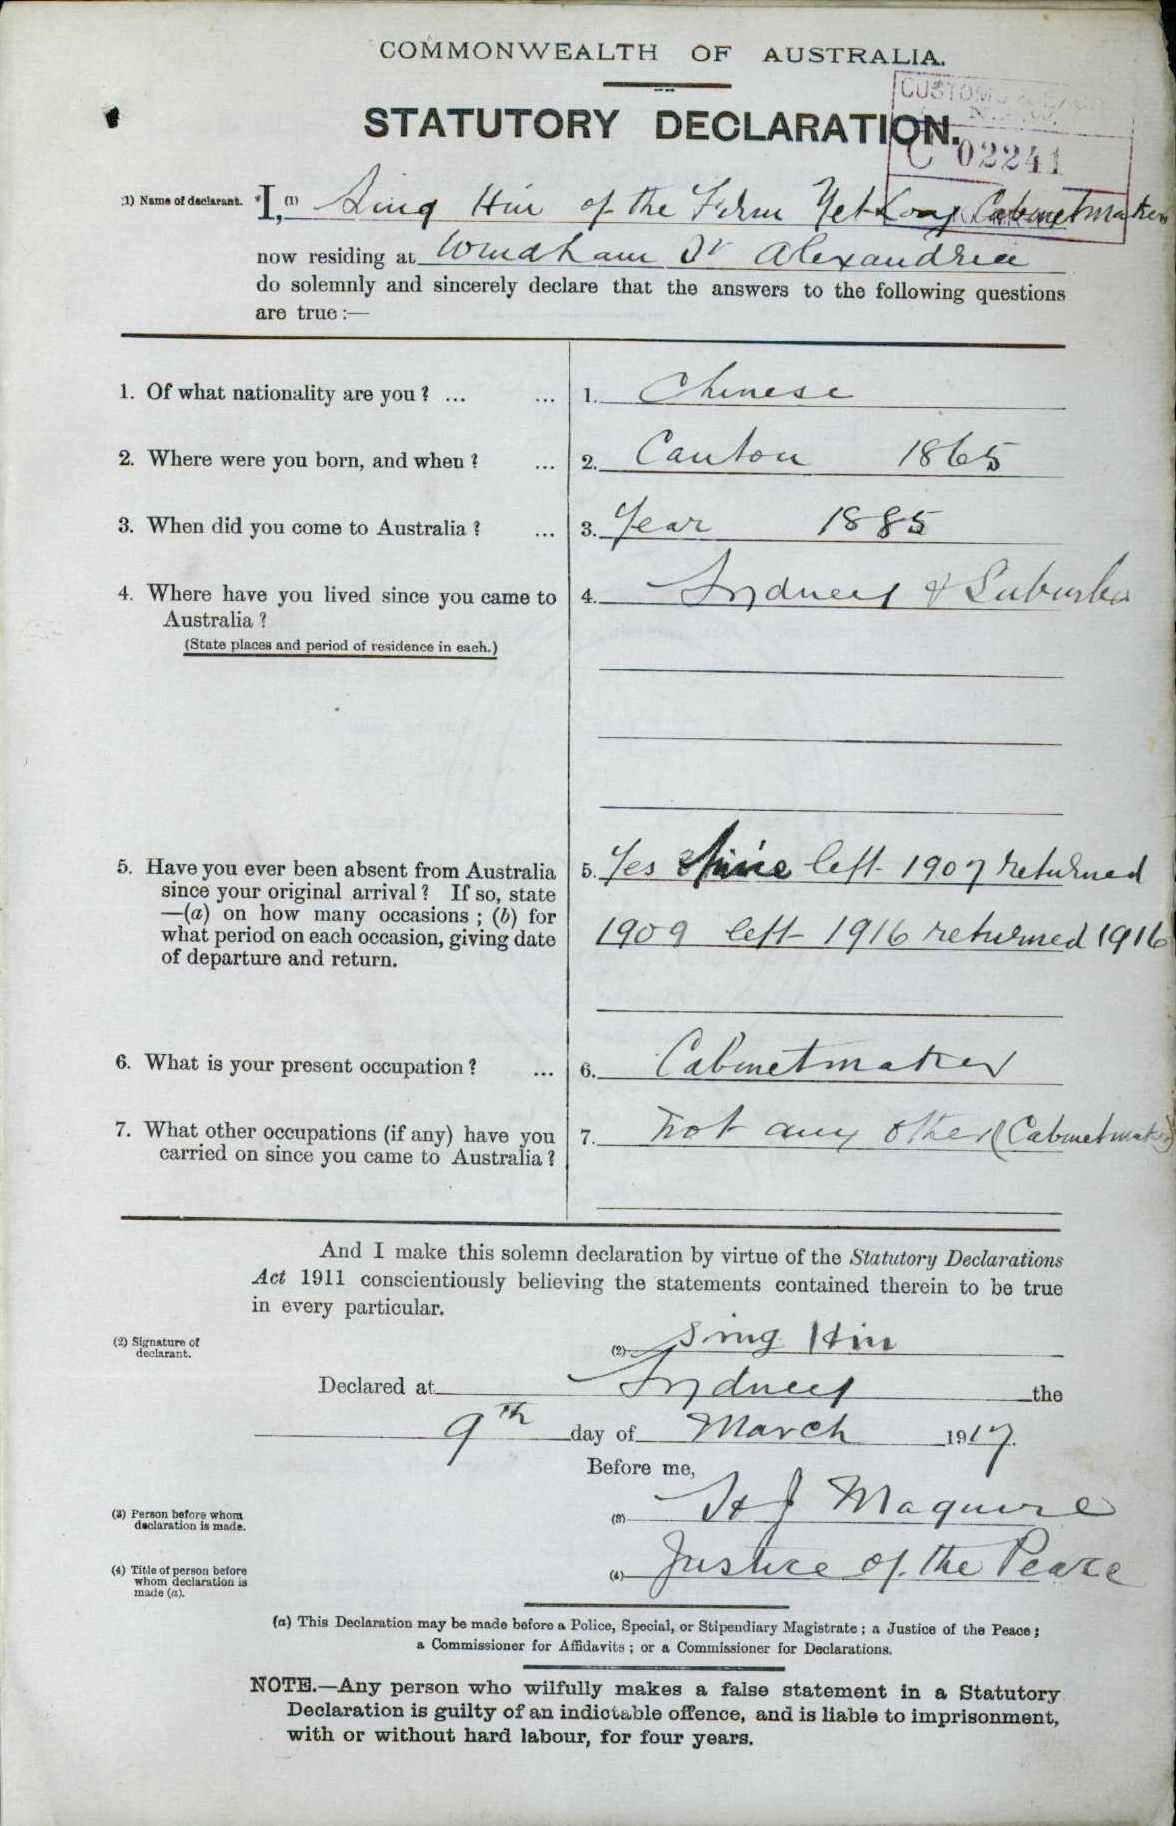 COMMONWEALTH OF AUSTRALIA.
STATUTORY DECLARATION.
CUSTOMS
C 02241
(1) Name of declarant. *I, (1) Sing Hin of the Firm Yet Loong Cabinetmakers
now residing at Wyndham St Alexandria
do solemnly and sincerely declare that the answers to the following questions
are true:—
1. Of what nationality are you? ... ... 1. Chinese
2. Where were you born, and when? ... 2. Canton 1865
3. When did you come to Australia? ... 3. Year 1885
4. Where have you lived since you came to 4. Sydney & Suburbs
Australia?
(State places and period of residence in each.)
5. Have you ever been absent from Australia 5. Yes left 1907 returned
since your original arrival? If so, state
—(a) on how many occasions; (b) for
what period on each occasion, giving date 1909 left 1916 returned 1916
of departure and return.
6. What is your present occupation? ... 6. Cabinetmaker
7. What other occupations (if any) have you 7. not any other (Cabinetmaker)
carried on since you came to Australia?
And I make this solemn declaration by virtue of the Statutory Declarations
Act 1911 conscientiously believing the statements contained therein to be true
in every particular.
(2) Signature of
declarant.
(2) Sing Hin
Declared at Sydney the
9th day of March 1917.
Before me,
(3) Person before whom
declaration is made.
(3) H J Maguire
(4) Title of person before
whom declaration is
made (a).
(4) Justice of the Peace
(a) This Declaration may be made before a Police, Special, or Stipendiary Magistrate; a Justice of the Peace;
a Commissioner for Affidavits; or a Commissioner for Declarations.
NOTE.—Any person who wilfully makes a false statement in a Statutory
Declaration is guilty of an indictable offence, and is liable to imprisonment,
with or without hard labour, for four years.